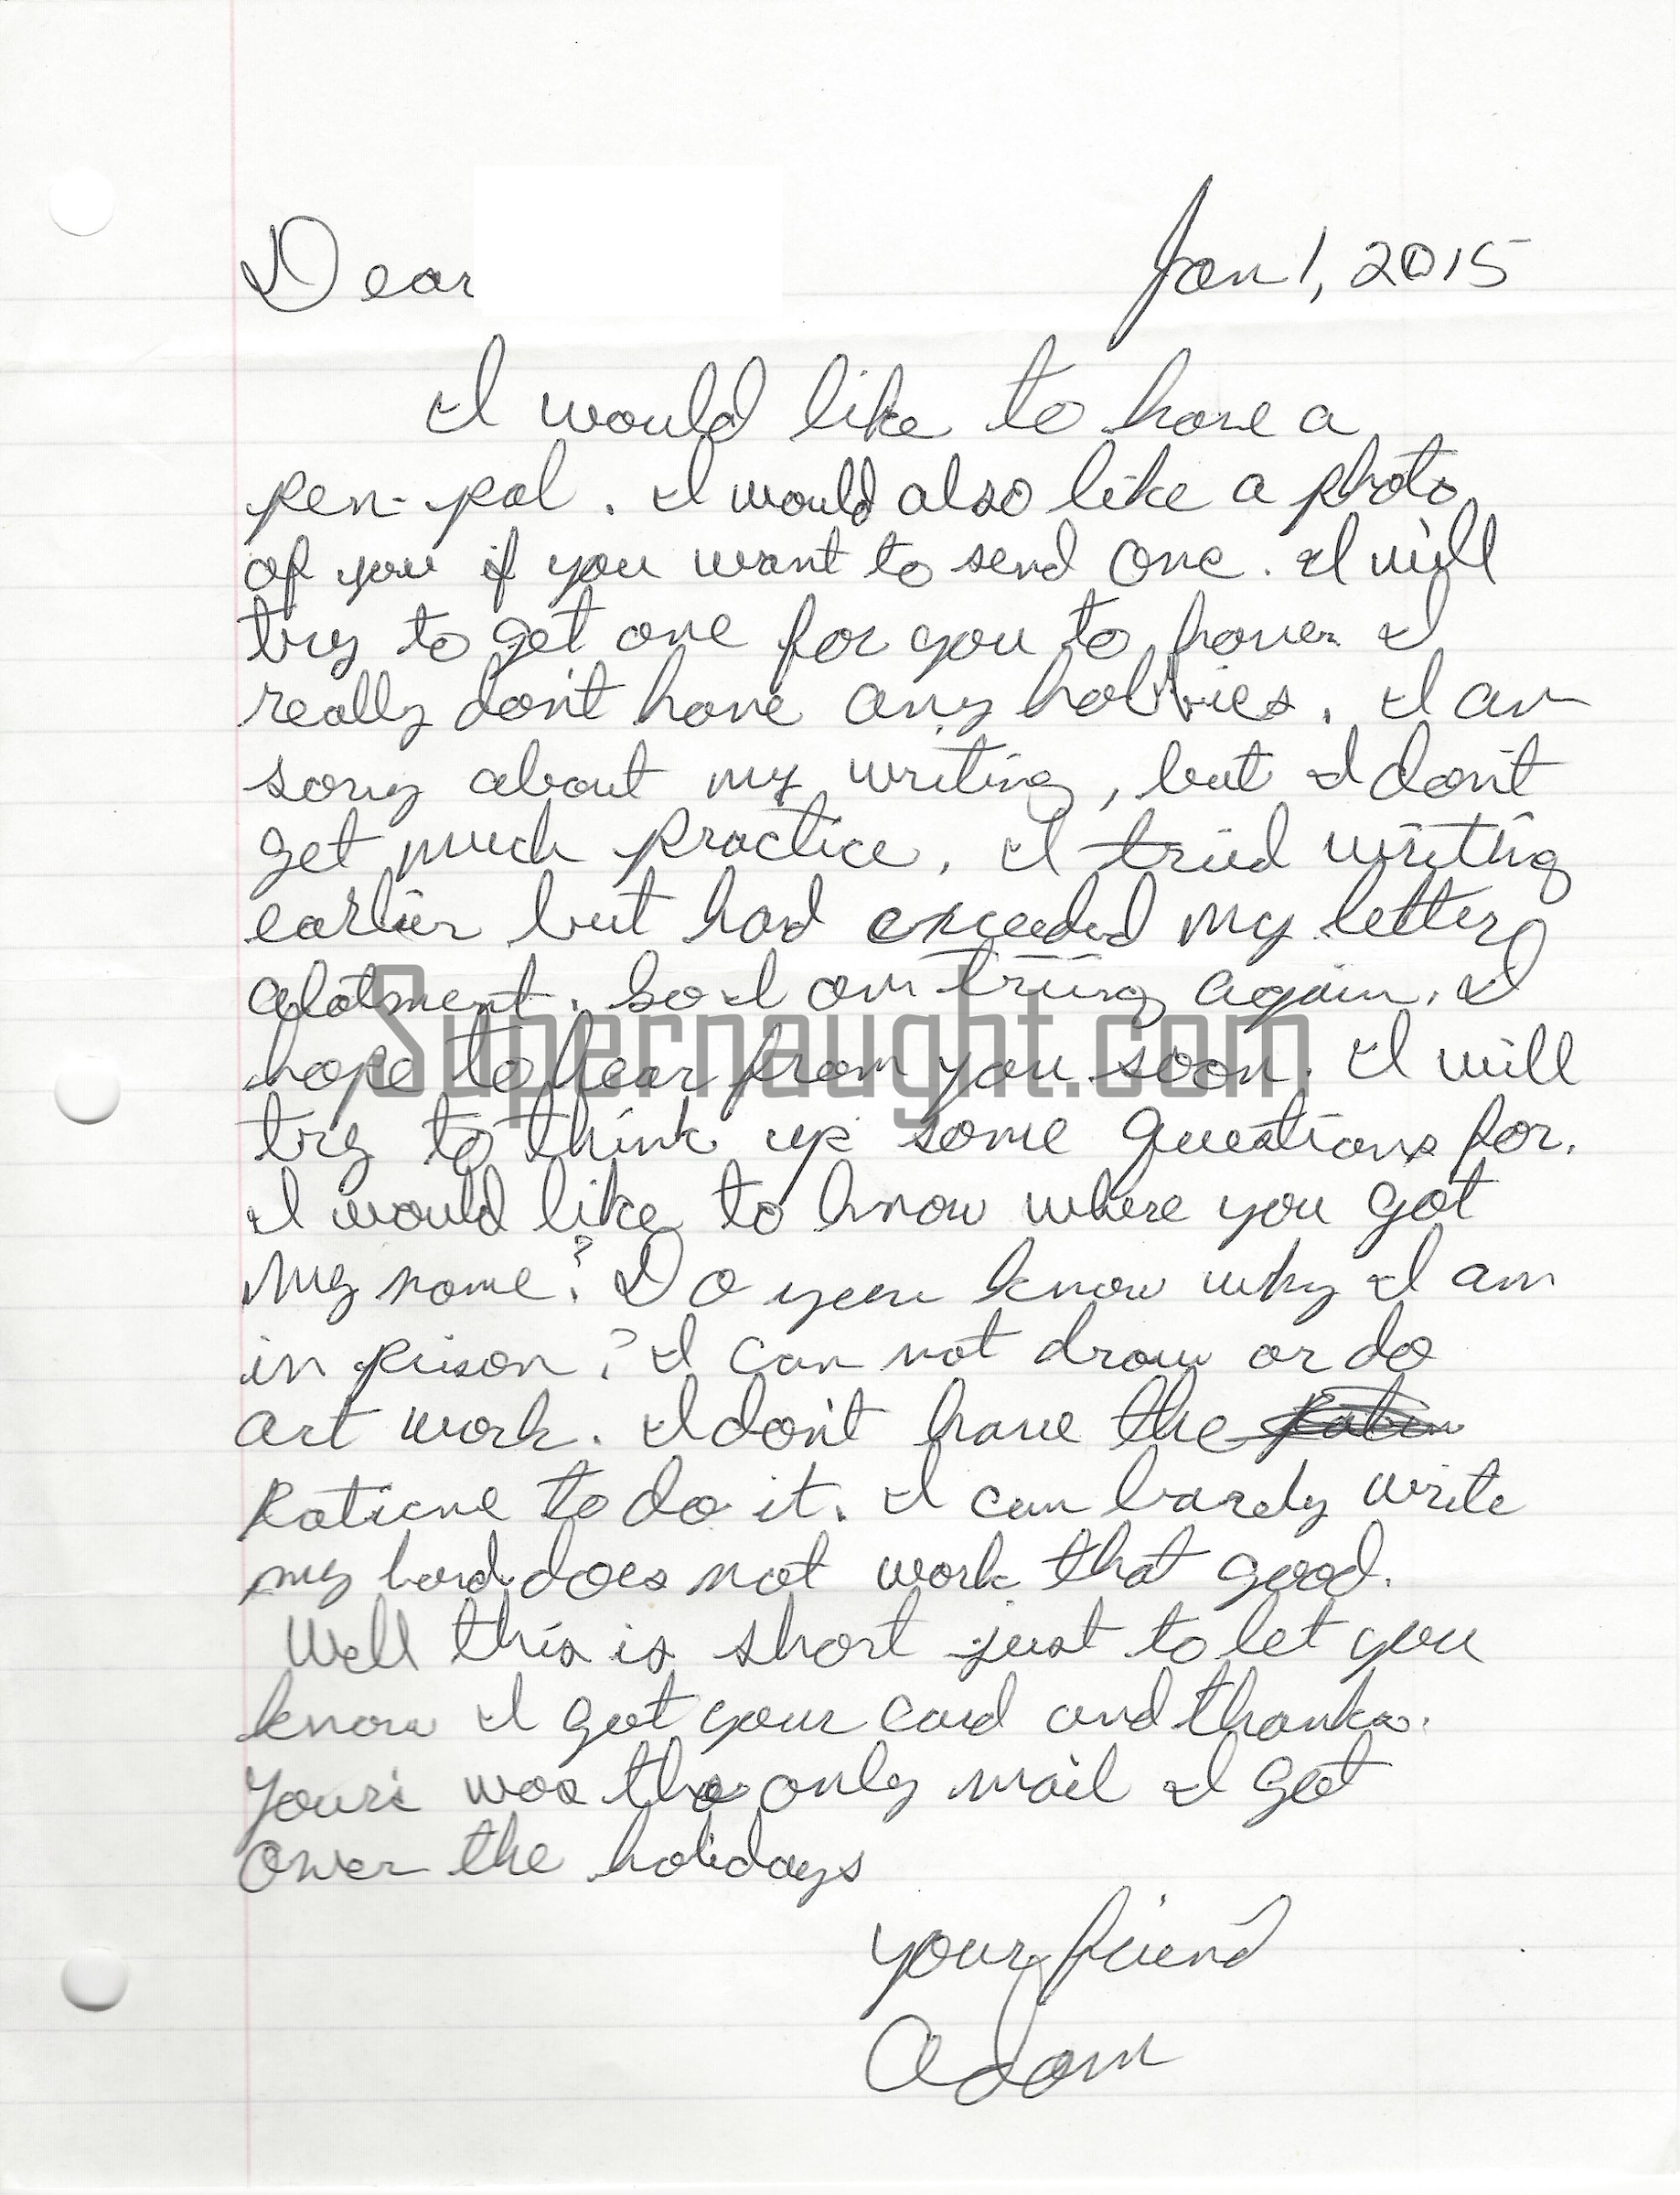 Dear
Jan 1, 2015
I would like to have a
pen-pal. I would also like a photo
of you if you want to send one. I will
try to get one for you to have. I
really don't have any hobbies. I am
sorry about my writing, but I don't
get much practice. I tried writing
earlier but had exceeded my letter
alotment. So I am triing again. I
hope to hear from you soon. I will
try to think up some questions for.
I would like to know where you got
my name? Do you know why I am
in prison? I can not draw or do
art work. I don't have the
patiene to do it. I can barely write
my hand does not work that good.
Well this is short just to let you
know I got your card and thanks.
Your's was the only mail I got
over the holidays
your friend
Adam
Supernaught.com